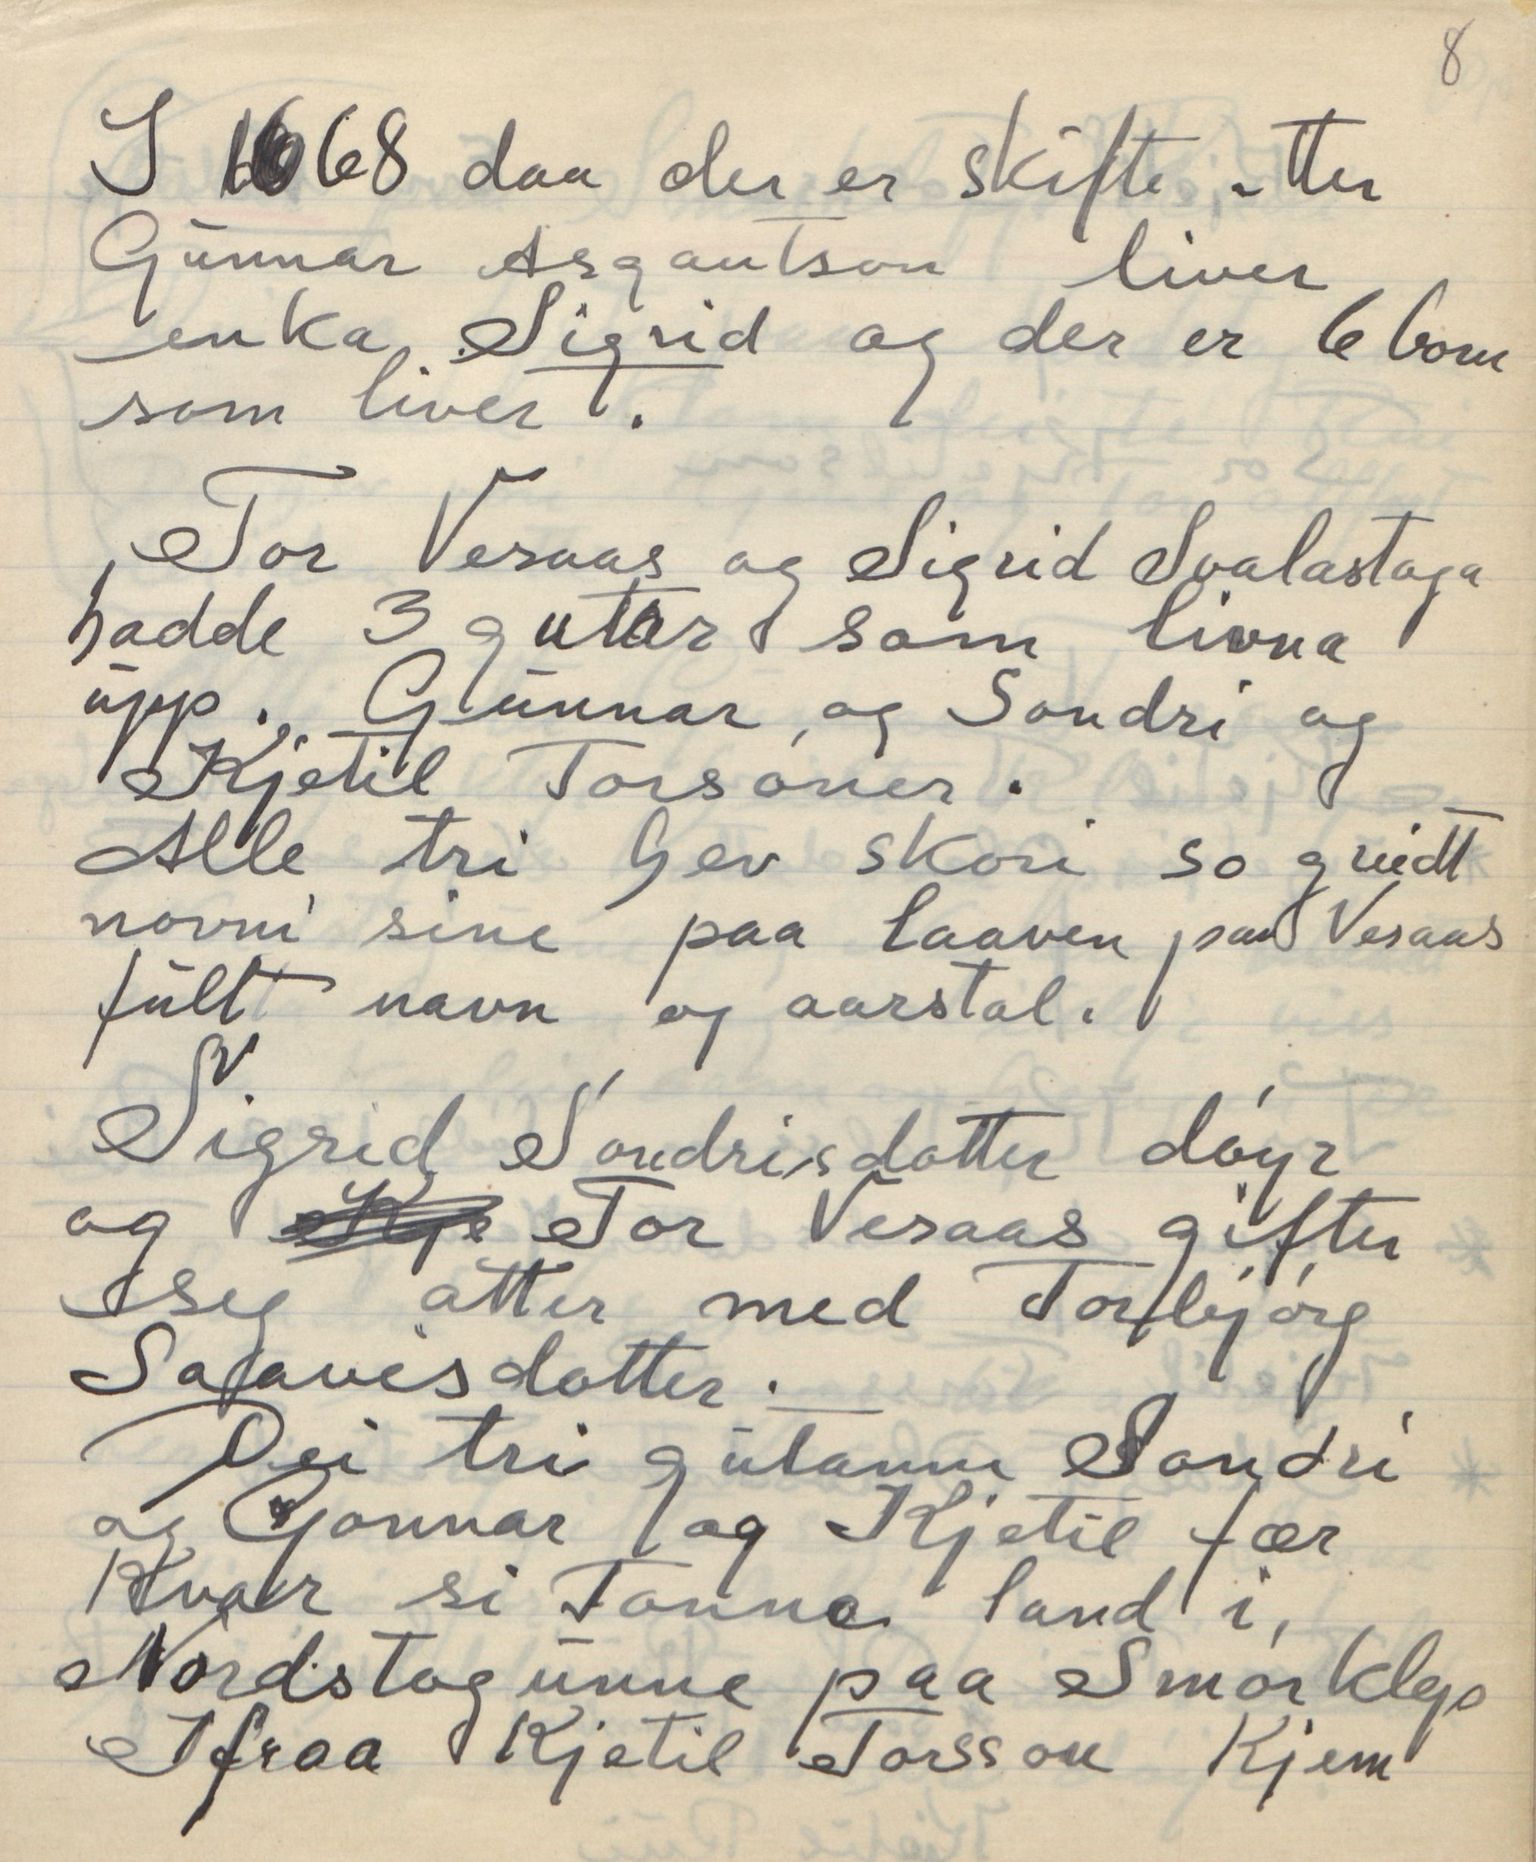 8
I 1668 daa der er skifte etter
Gunnar Asgautson liver
enka Sigrid og der er 6 born
som liver.
Tor Vesaas og Sigrid Svalastoga
hadde 3 gutar som livna
upp. Gunnar, og Sondri og
Kjetil Torsøner.
Alle tri hev skori so greidt
novni sine paa laaven paa Vesaas
fult navn og aarstal.
Sigrid Sondrisdotter døyr
og Tor Vesaas gifter
seg atter med Torbjørg
Salavisdotter.
Dei tri gutanne Sondri
og Gonnar og Kjetil fær
Kvar si Tonne land i
Nordstogunne paa Smørklep
Ifraa Kjetil Torsson Kjem